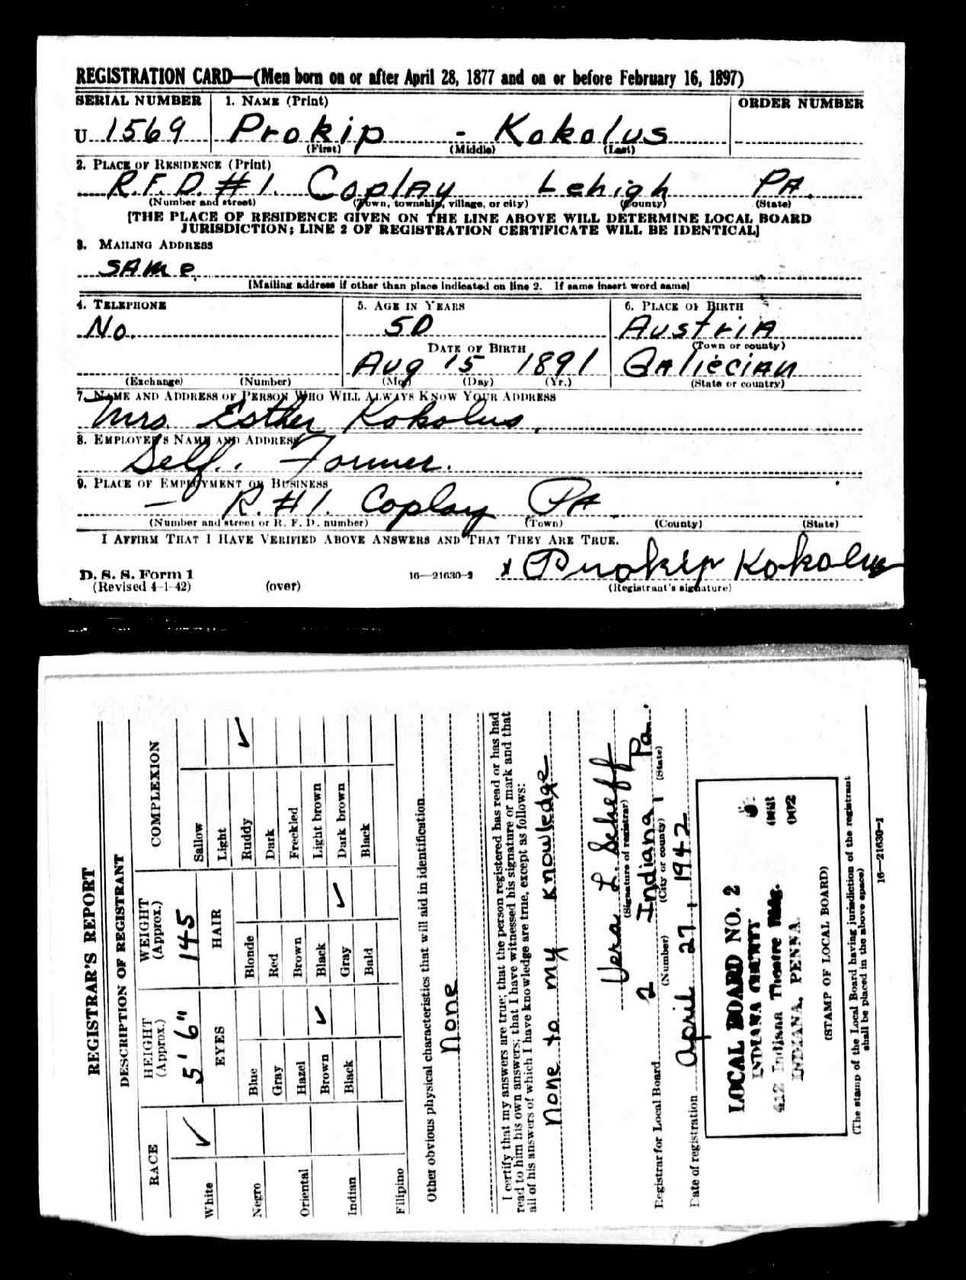 REGISTRATION CARD—(Men born on or after April 28, 1877 and on or before February 16, 1897)
SERIAL NUMBER 1. NAME (Print) ORDER NUMBER
U 1569 Prokip - Kokolus
(First) (Middle) (Last)
2. PLACE OF RESIDENCE (Print)
R.F.D. #1. Coplay Lehigh PA.
(Number and street) (Town, township, village, or city) (County) (State)
[THE PLACE OF RESIDENCE GIVEN ON THE LINE ABOVE WILL DETERMINE LOCAL BOARD
JURISDICTION; LINE 2 OF REGISTRATION CERTIFICATE WILL BE IDENTICAL]
3. MAILING ADDRESS
SAme
[Mailing address if other than place indicated on line 2. If same insert word same]
4. TELEPHONE 5. AGE IN YEARS 6. PLACE OF BIRTH
No. 50 Austria
DATE OF BIRTH (Town or county)
Aug 15 1891 Galiecian
(Exchange) (Number) (Mo.) (Day) (Yr.) (State or country)
7. NAME AND ADDRESS OF PERSON WHO WILL ALWAYS KNOW YOUR ADDRESS
Mrs. Esther Kokolus.
8. EMPLOYER'S NAME AND ADDRESS
Self. Farmer.
9. PLACE OF EMPLOYMENT OR BUSINESS
— R.#1. Coplay PA.
(Number and street or R. F. D. number) (Town) (County) (State)
I AFFIRM THAT I HAVE VERIFIED ABOVE ANSWERS AND THAT THEY ARE TRUE.
x Prokip Kokolus
D. S. S. Form 1
(Revised 4-1-42) (over) 16—21630-2 (Registrant's signature)
REGISTRAR'S REPORT
DESCRIPTION OF REGISTRANT
RACE HEIGHT (Approx.) WEIGHT (Approx.) COMPLEXION
5' 6" 145
White ✓ EYES HAIR Sallow
Light
Negro Blue Blonde Ruddy ✓
Gray Red Dark
Oriental Hazel Brown Freckled
Brown ✓ Black Light brown
Indian Black Gray ✓ Dark brown
Bald Black
Filipino
Other obvious physical characteristics that will aid in identification
None
I certify that my answers are true; that the person registered has read or has had
read to him his own answers; that I have witnessed his signature or mark and that
all of his answers of which I have knowledge are true, except as follows:
None to my knowledge
Vera L. Scheff
(Signature of registrar)
Registrar for Local Board 2 Indiana, Pa.
(Number) (City or county) (State)
Date of registration April 27, 1942
LOCAL BOARD NO. 2
INDIANA COUNTY 063
412 Indiana Theatre Bldg. 002
INDIANA, PENNA.
(STAMP OF LOCAL BOARD)
(The stamp of the Local Board having jurisdiction of the registrant
shall be placed in the above space)
16—21630-1